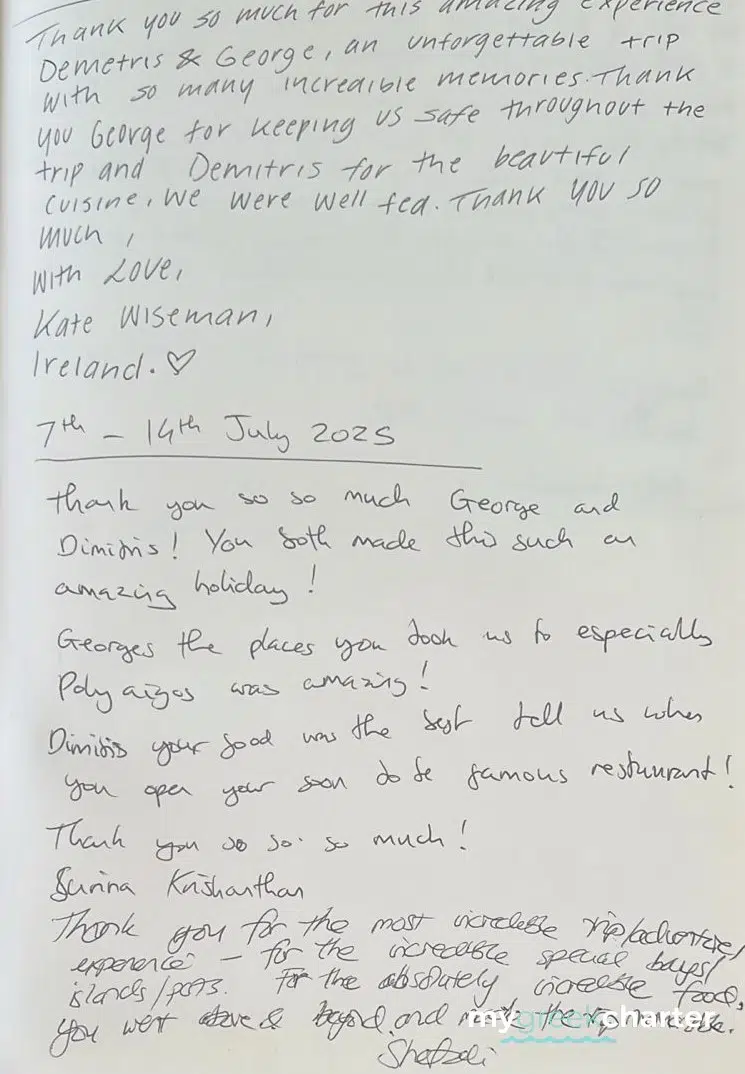 Thank you so much for this amazing experience
Demetris & George, an unforgettable trip
with so many incredible memories. Thank
you George for keeping us safe throughout the
trip and Demitris for the beautiful
cuisine, we were well fed. Thank you so
much,
With Love,
Kate Wiseman,
Ireland. ♡
7th - 14th July 2025
Thank you so so much George and
Dimitris! You both made this such an
amazing holiday!
Georges the places you took us to especially
Polyaigos was amazing!
Dimitris your food was the best tell us when
you open your soon to be famous restaurant!
Thank you so so so much!
Krishanthan
Thank you for the most incredible trip/adventure/
experience - for the incredible special bays/
islands/ports. For the absolutely incredible food,
you went above & beyond and made the
mygreekcharter